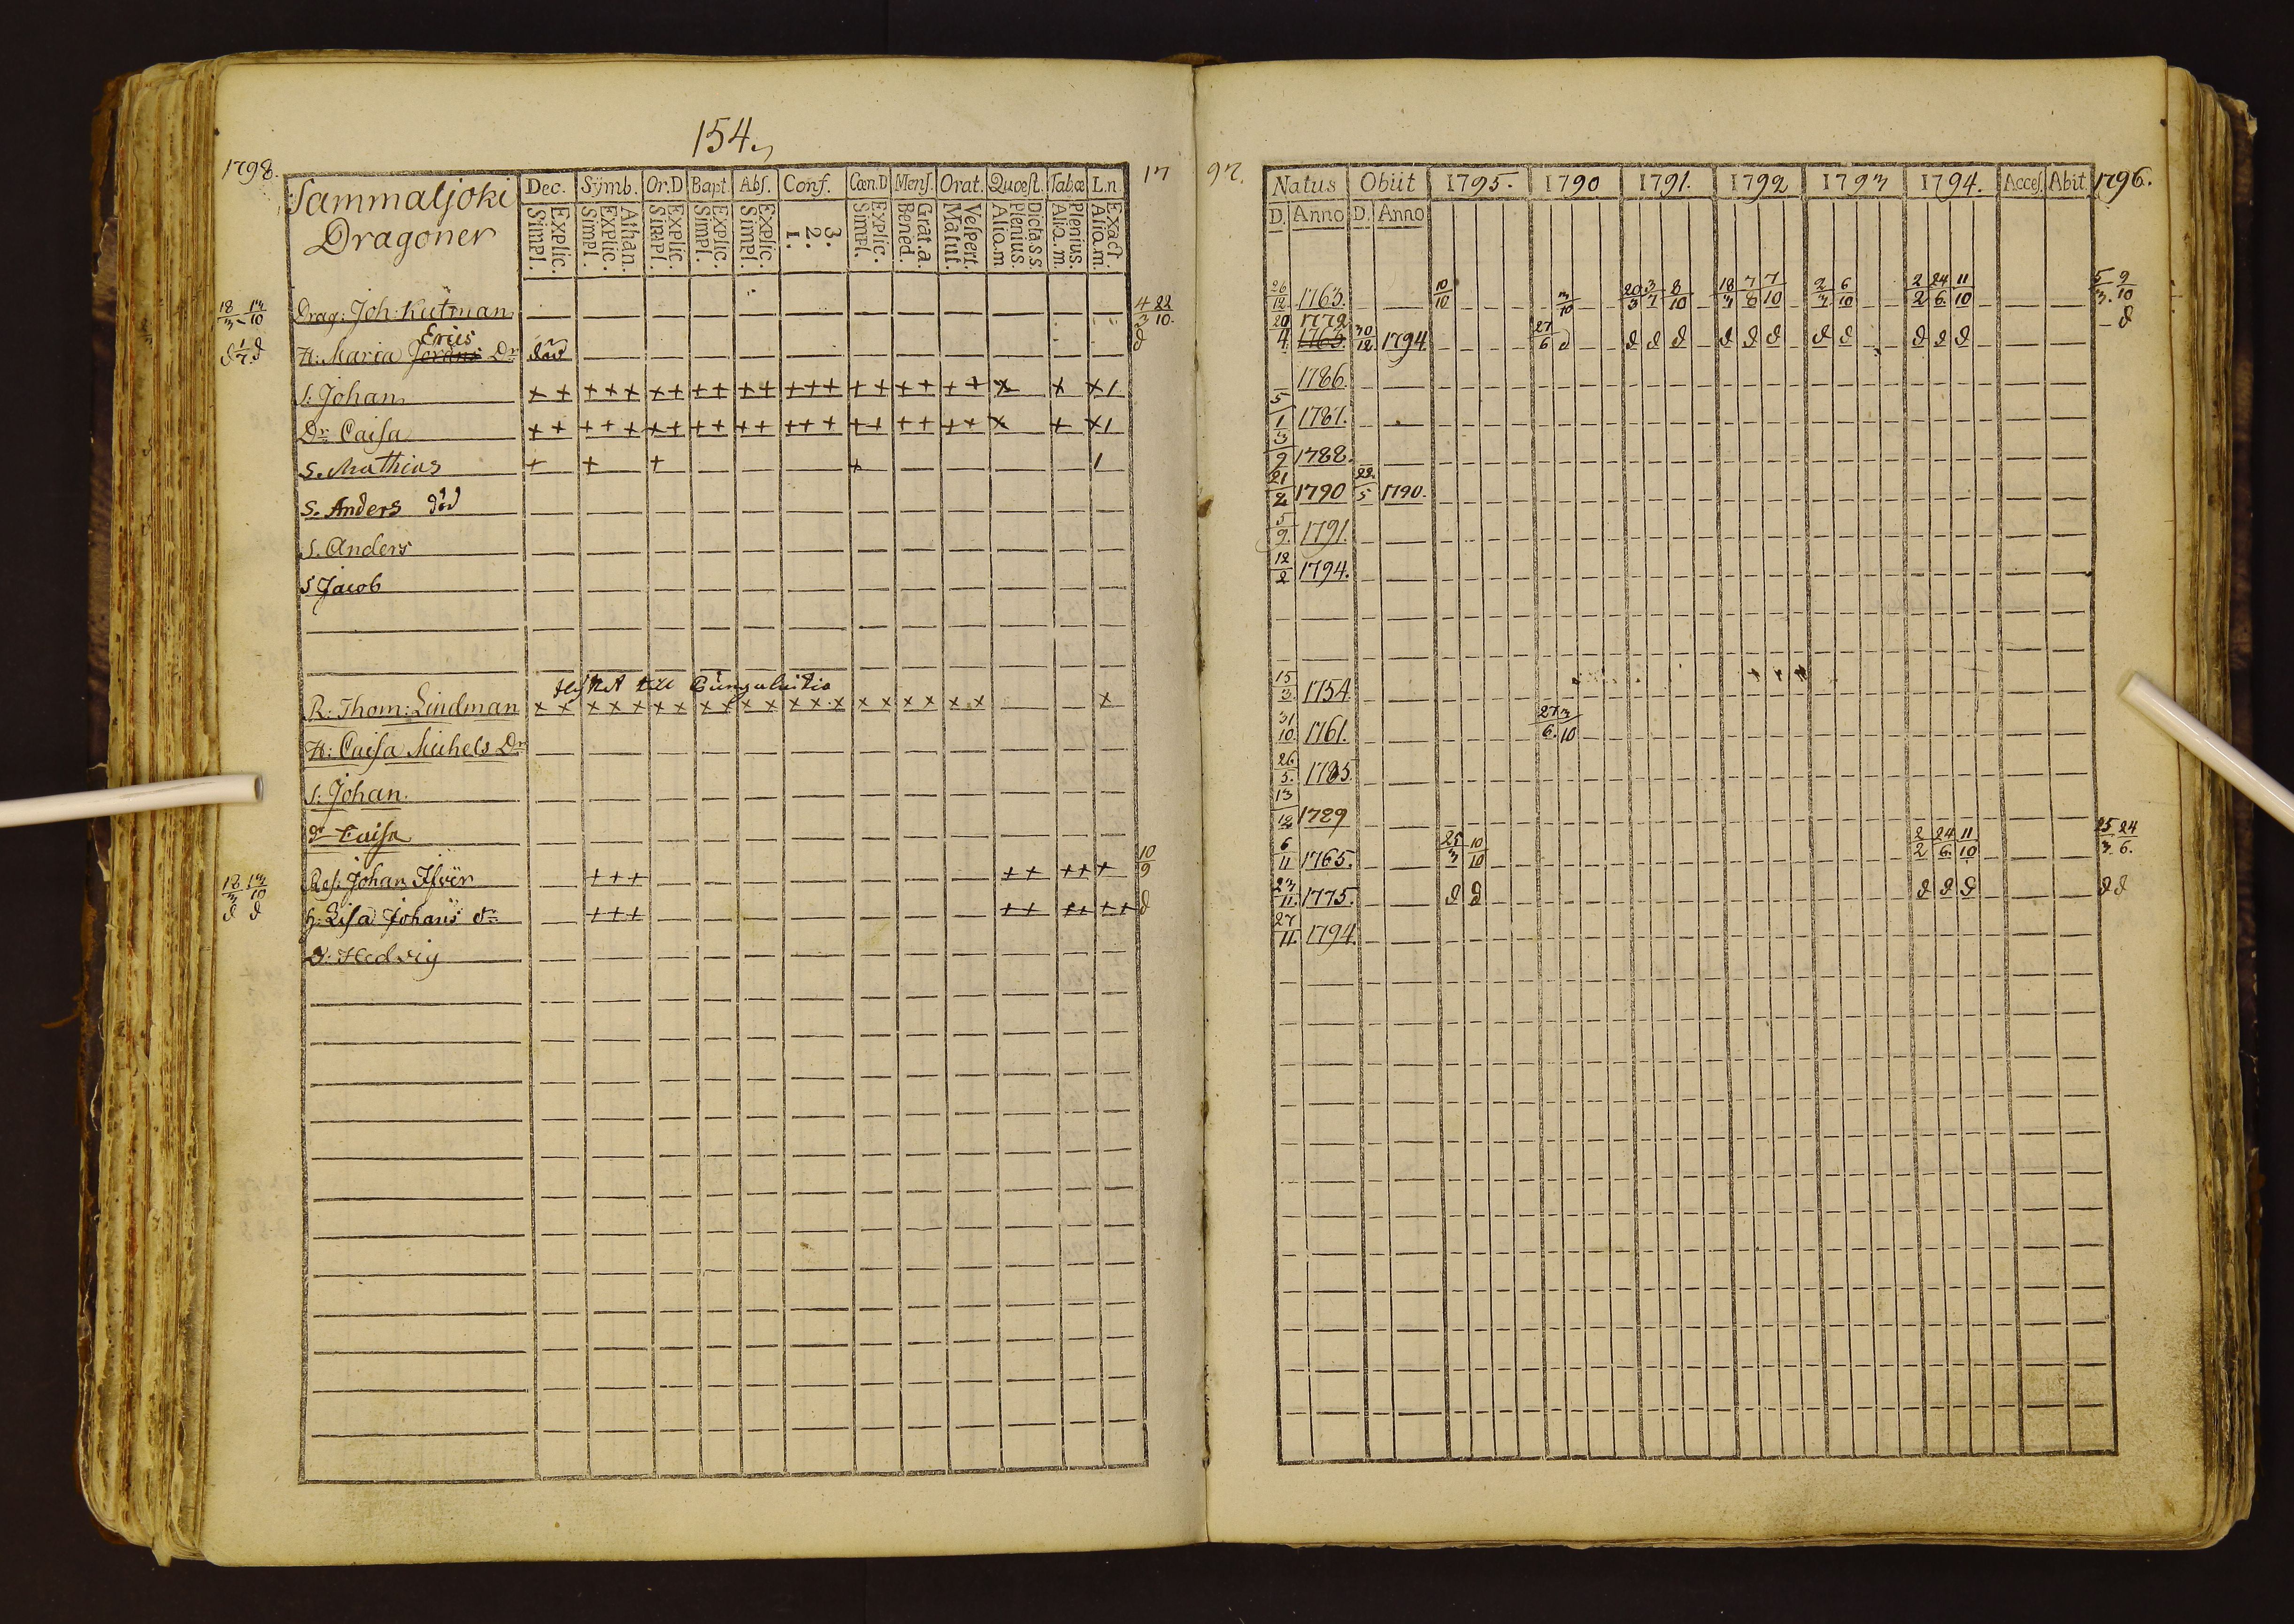 154.
1798.
Sammaljoki
Dragoner
Dec. Symb. Or.D Bapt. Abs. Conf. Cœn.D Mens. Orat. Quœst. Tab.œ L.n.
Explic. Simpl. Athan. Explic. Simpl. Explic. Simpl. Explic. Simpl. Explic. Simpl. 3. 2. 1. Explic. Simpl. Grat.a. Bened. Vespert. Matut. Dicta.s.s. Plenius. Alia.m Plenius. Alia.m. Exact. Alia.m.
18/3 - 14/10 Drag: Joh: Kutman 4/3 22/10.
Eriis
H: Maria Dr död
S: Johan + + + + + + + + + + + + + + + + + + + + + x x x 1
Dr Caisa + + + + + + + + + + + + + + + + + + + + + x + x 1
S. Mathias + + + + 1
S. Anders död
S. Anders
S Jacob
R: Thom: Lindman x x x x x x x x x x x x x x x x x x x x x x
H: Caisa Michels Dr
S: Johan.
dr Caisa
18/3 14/10 Res. Johan +++ ++ ++ + 10/9
d d h: Lisa Johans dr +++ ++ ++ ++ d
D: Hedvig
17 97.
Natus Obiit 1795. 1790 1791. 1792 1793 1794. Acces. Abit. 1796.
D. Anno D. Anno
26/12 1763. 10/10 3/10 20/3 3/7 8/10 18/3 7/8 7/10 2/3 6/10 2/2 24/6 11/10 5/3. 9/10
1772
20/4 1763 30/12 1794 27/6 d d d d d d d d d d d d - d
1786.
5/1 1787.
3/9 1788.
21/2 1790 22/5 1790.
5/9. 1791.
12/2 1794.
15/3 1754.
31/10 1761. 27/6. 3/10
26/5. 1785.
13/12 1789
6/11 1765. 25/3 10/10 2/2 24/6 11/10 25/3. 24/6.
23/11. 1775. d d d d d d d
27/11. 1794.